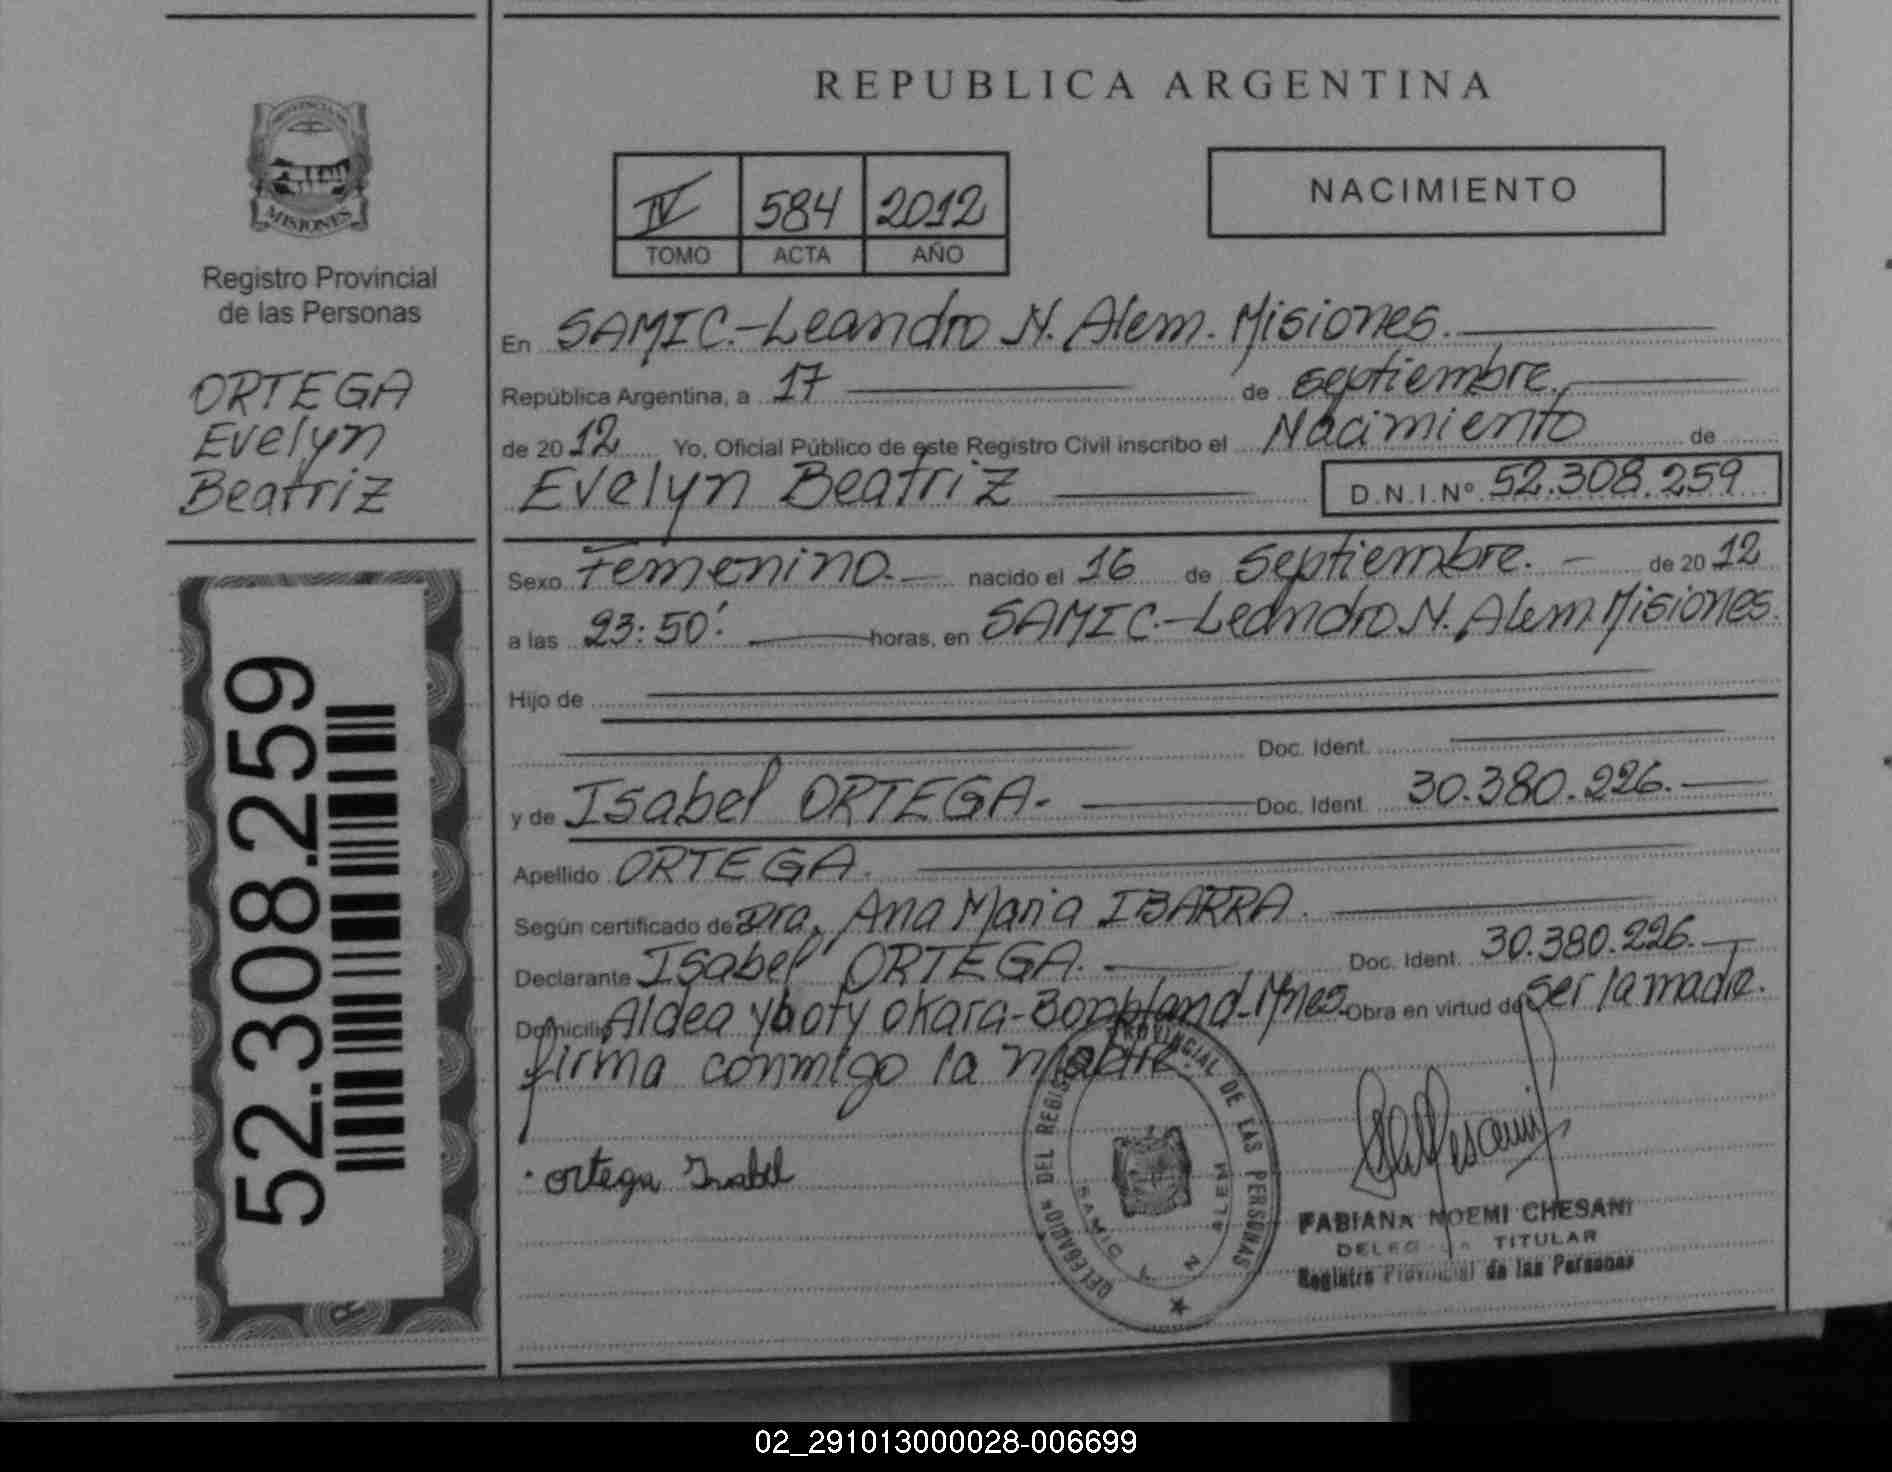 REPUBLICA ARGENTINA
PROVINCIA DE
MISIONES
Registro Provincial
de las Personas
ORTEGA
Evelyn
Beatriz
52.308.259
IV 584 2012
TOMO ACTA AÑO
NACIMIENTO
En SAMIC.-Leandro N. Alem. Misiones.
República Argentina, a 17 de septiembre.
de 20 12 Yo, Oficial Público de este Registro Civil inscribo el Nacimiento de
Evelyn Beatriz D.N.I.Nº 52.308.259
Sexo Femenino.- nacido el 16 de septiembre. - de 20 12
a las 23:50'. horas, en SAMIC.-Leandro N. Alem. Misiones.
Hijo de
Doc. Ident.
y de Isabel ORTEGA.- Doc. Ident. 30.380.226.-
Apellido ORTEGA.
Según certificado de Dra. Ana Maria IBARRA.
Declarante Isabel ORTEGA. Doc. Ident. 30.380.226.-
Domicilio Aldea yboty okara-Bonpland-Mnes. Obra en virtud de ser la madre.
firma conmigo la madre.
ortega Isabel
DELEGACION DEL REGISTRO PROVINCIAL DE LAS PERSONAS
SAMIC
N ALEM
FABIANA NOEMI CHESANI
DELEGADA TITULAR
Registro Provincial de las Personas
02_291013000028-006699